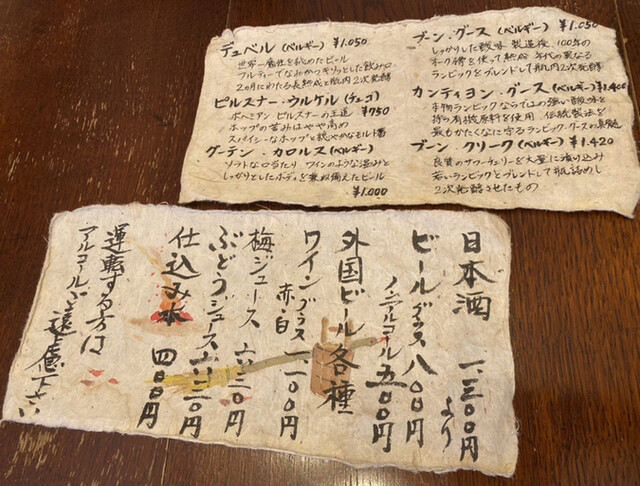 デュベル (ベルギー) ¥1.050
世界一魔性を秘めたビール
フルーティーでなめらか
2カ月にわたる長熟成と瓶内2次発酵
ピルスナー・ウルケル (チェコ)
ボヘミアンピルスナーの王道 ¥750
ホップの苦みはやや高め
スパイシーなホップと穏やかなモルト香
グーデン・カロルス (ベルギー)
ソフトな口当たり ワインのような温みと
しっかりとしたボディを兼ね備えたビール
¥1.000
ブーン・グース (ベルギー) ¥1.050
しっかりした酸味 製造後、100年の
オーク樽を使って熟成 年代の異なる
ランビックをブレンドして瓶内2次発酵
カンティヨン・グース (ベルギー) ¥1.400
本物ランビックならではの強い酸味を
持つ有機原料を使用 伝統製法を
最もかたくなに守るランビック・グースの
ブーン・クリーク (ベルギー) ¥1.420
良質のサワーチェリーを大量に漬け込み
若いランビックとブレンドして瓶詰めし
2次発酵させたもの
日本酒 一、三〇〇円より
ビール グラス 八〇〇円
ノンアルコール 五〇〇円
外国ビール各種
ワイン グラス 赤・白 一、一〇〇円
梅ジュース 六三〇円
ぶどうジュース 六三〇円
仕込み水 四〇〇円
運転する方は
アルコールご遠慮下さい